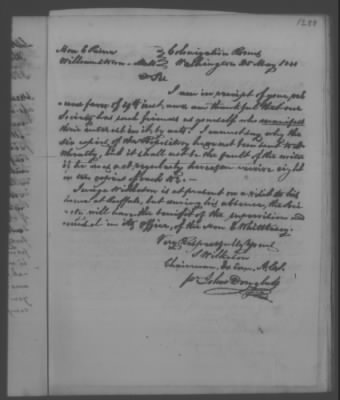 1289
Hon E
Colonization Rooms
Washington 25 May 18
D Sir
I am in receipt of your
favor of 19th inst, and am thankful that our
Society has such friends as yourself who manifest
their interest in it by acts. I cannot say why the
six copies of the Repository have not been sent to
but it shall not be the fault of the
if he does not regularly hereafter receive eight
copies of each No. —
Judge Wilkeson is at present on a visit to his
home at Buffalo, but during his absence, the
will have the benefit of the supervision and
in its office, of the Hon E Whittlesey
Very Respectfully Yours
S Wilkeson
Chairman Ex Com, A.C.S.
pr John